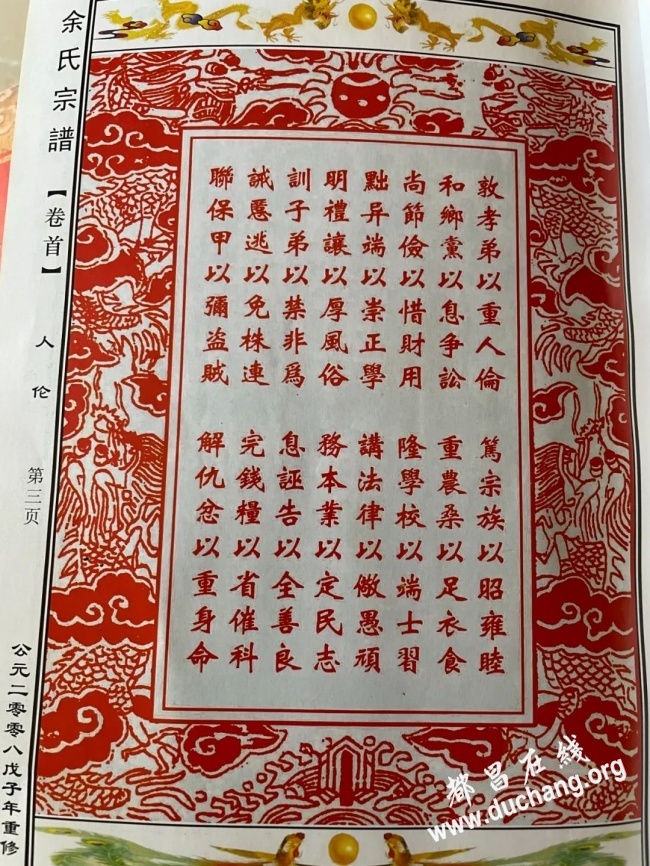 余氏宗譜
【卷首】
人伦
第三页
公元二零零八戊子年重修
敦孝弟以重人倫 篤宗族以昭雍睦
和鄉黨以息争訟 重農桑以足衣食
尚節儉以惜財用 隆學校以端士習
黜异端以崇正學 講法律以儆愚頑
明禮讓以厚風俗 務本業以定民志
訓子弟以禁非為 息誣告以全善良
誡慝逃以免株連 完錢糧以省催科
聯保甲以彌盜賊 解仇忿以重身命
都昌在线
www.duchang.org